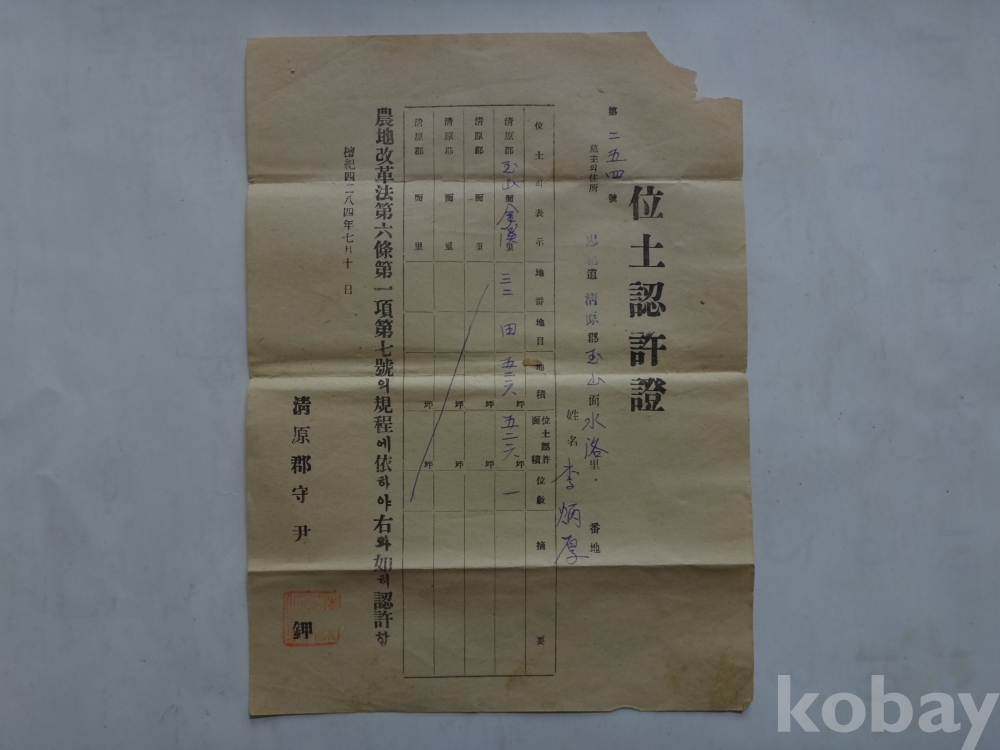 第二五四號
位土認許證
墓主의住所
忠北道淸原郡玉山面水洛里 番地
姓名 李炳厚
位土의表示 地番 地目 地積 位土認許面積 位數 摘要
淸原郡玉山面金溪里 三二 田 五二六坪 五二六坪 一
淸原郡 面 里 坪 坪
淸原郡 面 里 坪 坪
淸原郡 面 里 坪 坪
農地改革法第六條第一項第七號의規程에依하야右와如히認許함
檀紀四二八四年七月十 日
淸原郡守 尹 鉀
kobay